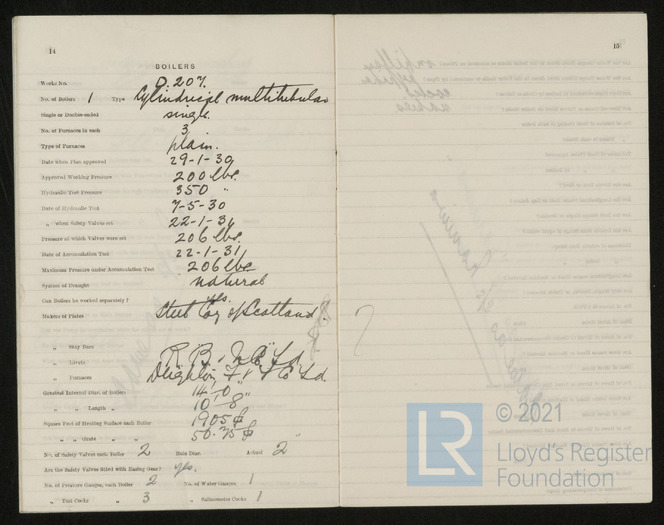 14
BOILERS
Works No. D.207.
No. of Boilers 1 Type Cylindrical multitubular
Single or Double-ended single.
No. of Furnaces in each 3
Type of Furnaces plain.
Date when Plan approved 29-1-30
Approved Working Pressure 200 lbs.
Hydraulic Test Pressure 350 "
Date of Hydraulic Test 7-5-30
" when Safety Valves set 22-1-31
Pressure at which Valves were set 206 lbs.
Date of Accumulation Test 22-1-31
Maximum Pressure under Accumulation Test 206 lbs
System of Draught natural
Can Boilers be worked separately? yes.
Makers of Plates Steel Coy of Scotland.
" Stay Bars
" Rivets
" Furnaces Deighton
Greatest Internal Diam. of Boilers 14'0"
" " Length " 10'8"
Square Feet of Heating Surface each Boiler 1905
" " Grate " " 50.75
No. of Safety Valves each Boiler 2 Rule Diam. Actual 2
Are the Safety Valves fitted with Easing Gear? yes.
No. of Pressure Gauges, each Boiler 2 No. of Water Gauges 1
" Test Cocks " 3 " Salinometer Cocks 1
15
LR © 2021
Lloyd's Register
Foundation